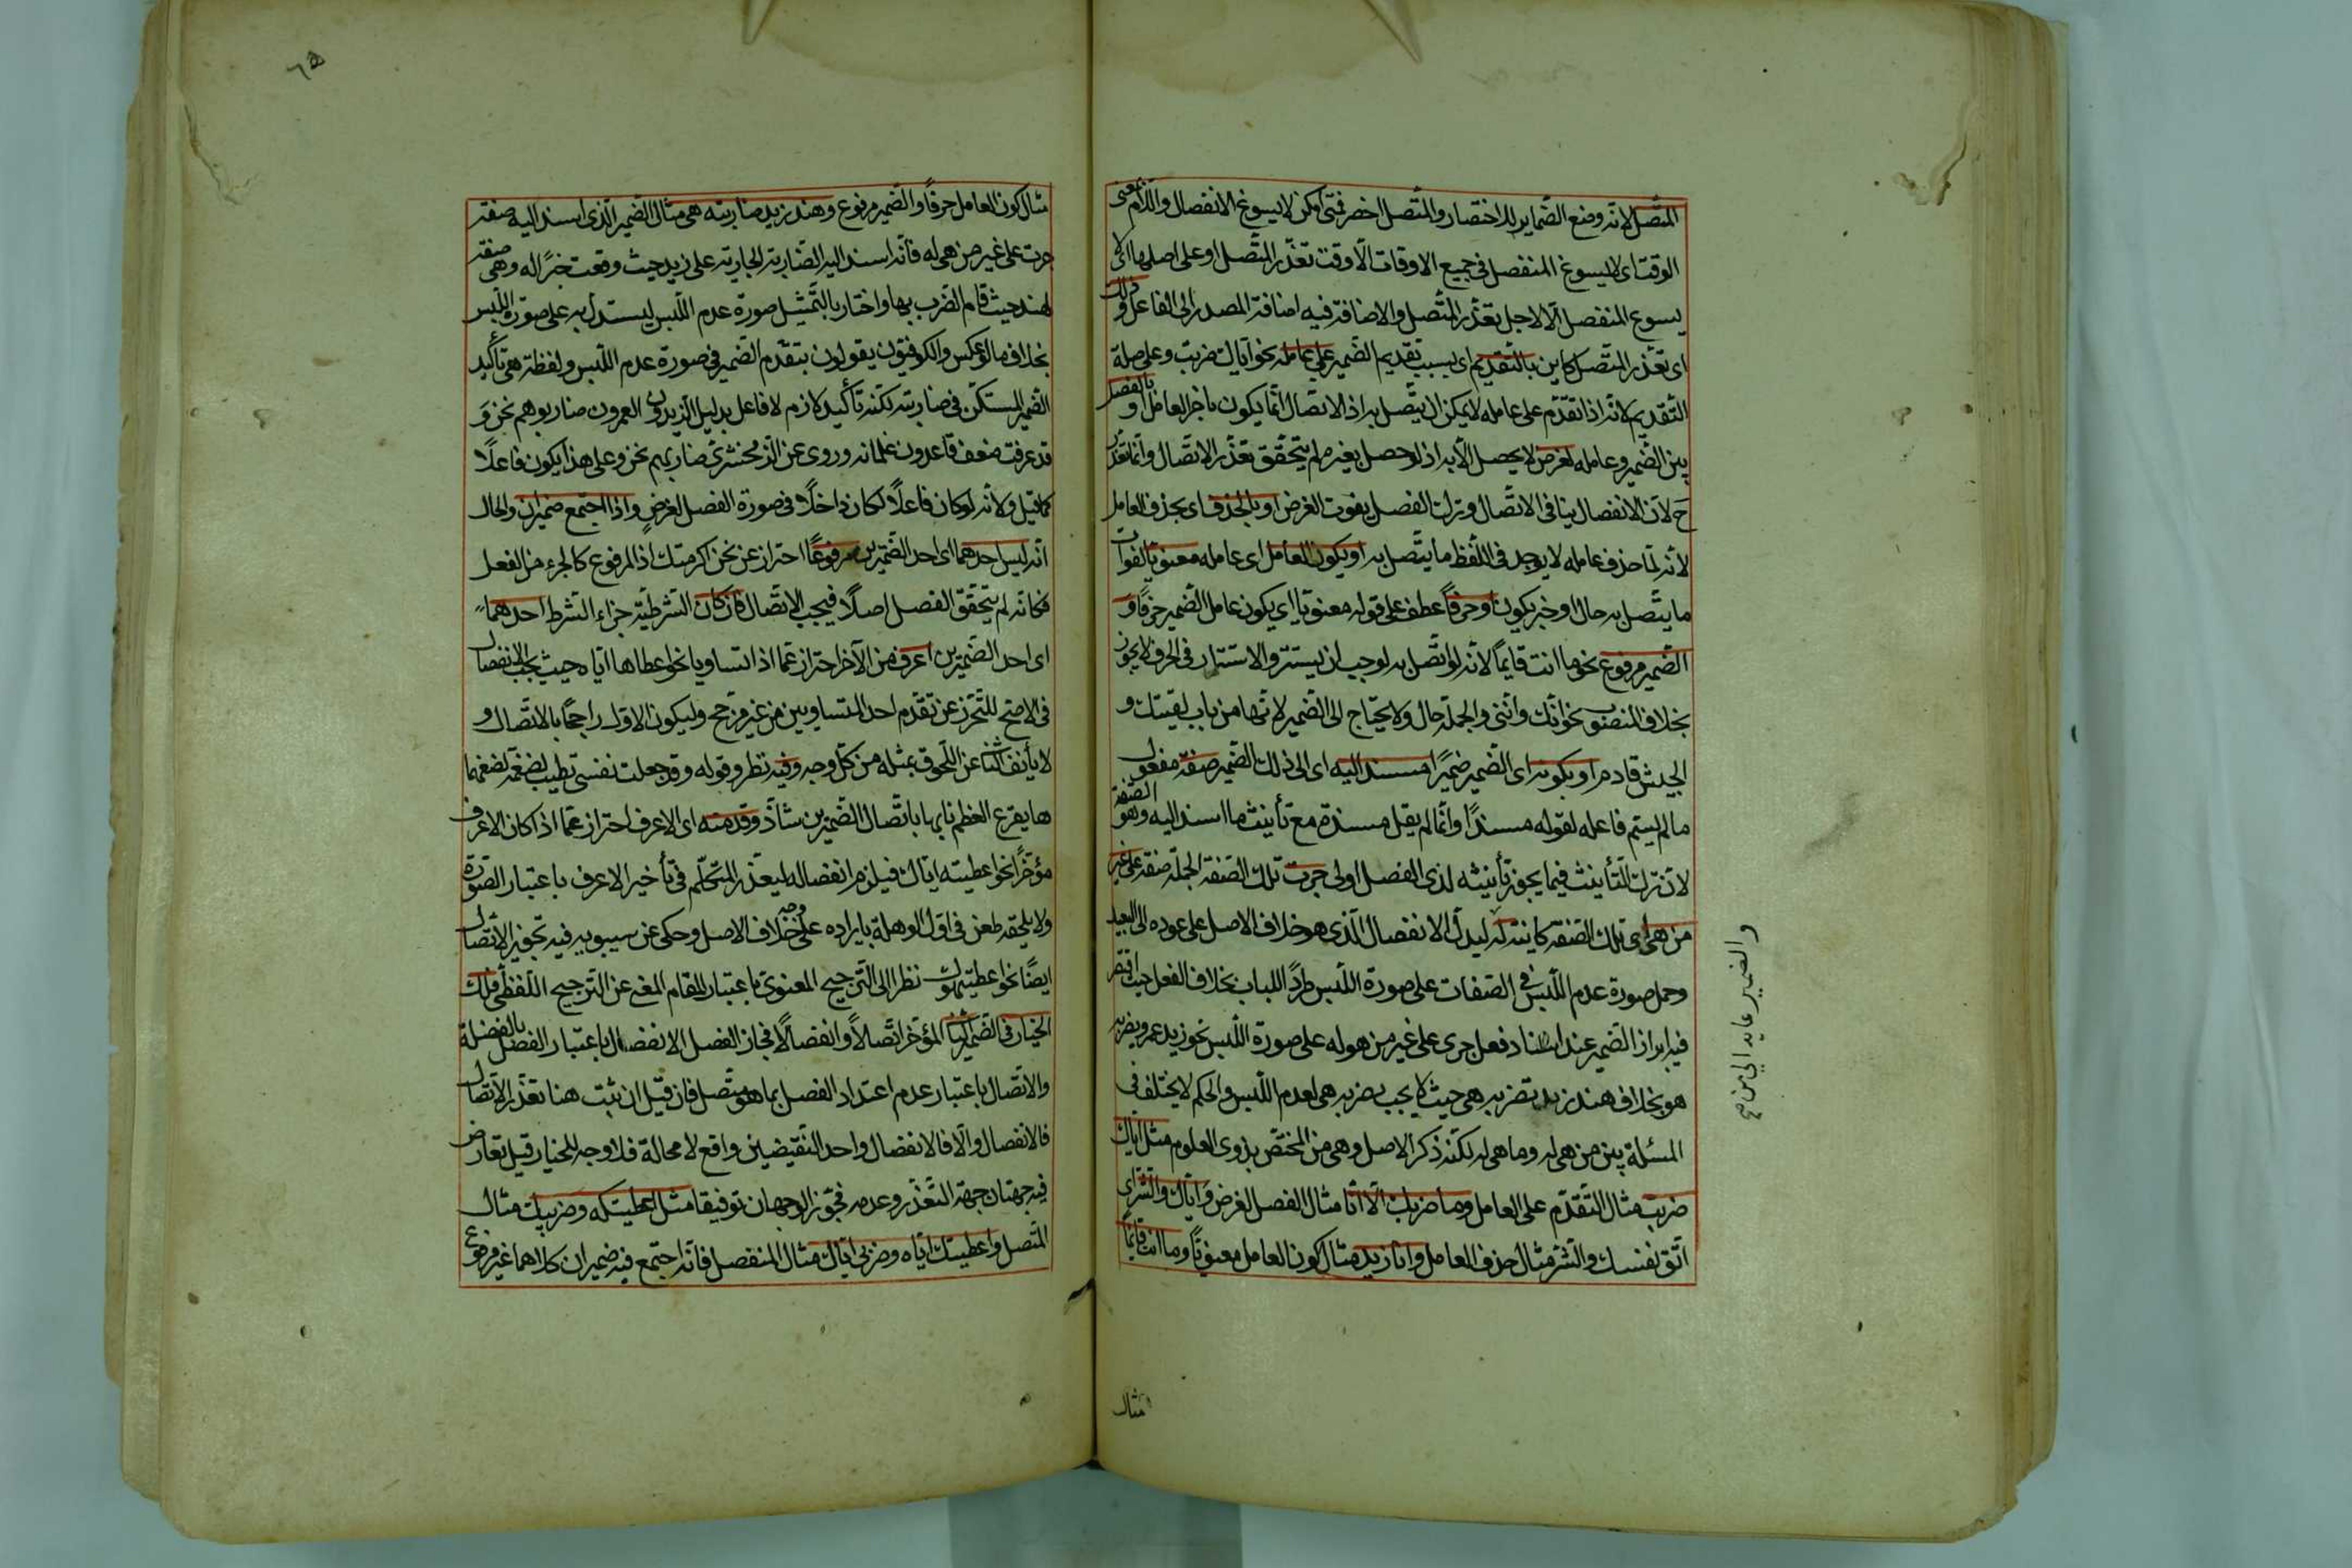 المتّصل لانّه وضع الضّماير للاختصار والمتّصل اخصر فمتى امكن لا يسوغ الانفصال واللام بمعنى
الوقت اى لا يسوغ المنفصل فى جميع الاوقات الّا وقت تعذّر المتّصل او على اصلها اى لا
يسوغ المنفصل الّا لاجل تعذّر المتّصل والاضافة فيه اضافة المصدر الى الفاعل وذلك
اى تعذّر المتّصل كاين بالتّقديم اى بسبب تقديم الضّمير على عامله نحو ايّاك ضربت وعلى صلة
التّقديم لانّه اذا تقدّم على عامله لا يمكن ان يتّصل به اذ الاتّصال انّما يكون بآخر العامل او بالفصل
بين الضّمير وعامله لغرض لا يحصل الّا به اذ لو حصل بغيره لم يتحقّق تعذّر الاتّصال وانّما تعذّر
ح لانّ الانفصال ينافى الاتّصال وترك الفصل يفوت الغرض او بالحذف اى بحذف العامل
لانّه لمّا حذف عامله لا يوجد فى اللّفظ ما يتّصل به او يكون العامل اى عامله معنويّا لفوات
ما يتّصل به حال او خبر يكون او حرفاً عطف على قوله معنويّا اى يكون عامل الضّمير حرفاً و
الضّمير مرفوع نحو ما انت قايماً لانّه لو اتّصل به لوجب ان يستتر والاستتار فى الحرف لا يجوز
بخلاف المنصوب نحو انّك وانّنى والجملة حال ولا يحتاج الى الضّمير لانّها من باب لقيتك و
الجيش قادم او بكونه اى الضّمير ضميرًا مسند اليه اى الى ذلك الضّمير صفة مفعول
ما لم يسمّ فاعله لقوله مسندًا وانّما لم يقل مسندة مع تأنيث ما اسند اليه وهو الصّفة
لانّ ترك التّأنيث فيما يجوز تأنيثه لذى الفصل اولى جرت تلك الصّفة الجملة صفة على غير
من هى اى تلك الصّفة كاينة له ليدلّ الانفصال الّذى هو خلاف الاصل على عوده الى البعيد
وحمل صورة عدم اللّبس فى الصّفات على صورة اللّبس طردًا للباب بخلاف الفعل حيث اقتصر
فيه ابراز الضّمير عند اسناد فعل جرى على غير من هو له على صورة اللّبس نحو زيد عمرو يضربه
هو بخلاف هند زيد تضربه هى حيث لا يجب يضربه هى لعدم اللّبس والحكم لا يختلف فى
المسئلة بين من هى له وما هى له لكنّه ذكر الاصل وهى من المختصّ بذوى العلوم مثل ايّاك
ضربت مثال التّقدّم على العامل وما ضربك الّا انا مثال الفصل لغرض وايّاك والشّر اى
اتّق نفسك والشّر مثال حذف العامل وانا زيد مثال كون العامل معنويّاً وما انت قايماً
والضمير عايد الى من صح
مثال
٦٥
مثال كون العامل حرفاً والضّمير مرفوع وهند زيد ضاربته هى مثال الضّمير الّذى اسند اليه صفة
جرت على غير من هى له فانّه اسند اليه الضّاربة الجارية على زيد حيث وقعت خبرًا له وهى صفة
لهند حيث قام الضّرب بها واختار بالتّمثيل صورة عدم اللّبس ليستدلّ به على صورة اللّبس
بخلاف ما لو عكس والكوفيّون يقولون بتقدّم الضّمير فى صورة عدم اللّبس ولفظة هى تأكيد
الضّمير المستكن فى ضاربته لكنّه تأكيد لازم لا فاعل بدليل الزّيدون العمرون ضاربوهم نحن و
قد عرفت ضعف قاعدون غلمانه وروى عن الزّمخشرىّ ضاربهم نحن وعلى هذا يكون فاعلاً
كما قيل ولانّه لو كان فاعلاً لكان داخلاً فى صورة الفصل لغرض واذا اجتمع ضميران والحال
انّه ليس احدهما اى احد الضّميرين مرفوعًا احتراز عن نحن اكرمتك اذ المرفوع كالجزء من الفعل
فكانّه لم يتحقّق الفصل اصلاً فيجب الاتّصال فان كان الشّرطيّة جزاء الشّرط احدهما
اى احد الضّميرين اعرف من الآخر احتراز عمّا اذا تساويا نحو اعطاها ايّاه حيث يجب الانفصال
فى الاصحّ للتّحرّز عن تقدّم احد المتساويين من غير مرجّح وليكون الاوّل راجحًا بالاتّصال و
لا يأنف الثّانى عن اللّحوق بمثله من كلّ وجه وفيه نظر وقوله وقد جعلت نفسى تطيب لضغمة لضغمهما
ها يقرع العظم نابها باتّصال الضّميرين شاذّ وقدّمته اى الاعرف احتراز عمّا اذا كان الاعرف
مؤخّرًا نحو اعطيته ايّاك فيلزم انفصاله ليعذر المتكلّم فى تأخير الاعرف باعتبار الصّورة
ولا يلحقه طعن فى اوّل الوهلة بايراده على وجه خلاف الاصل وحكى عن سيبويه فيه تجويز الاتّصال
ايضًا نحو اعطيتهوك نظرا الى التّرجيح المعنوىّ باعتبار المقام المغنى عن التّرجيح اللّفظىّ فلك
الخيار فى الضّمير الثّانى المؤخّر اتّصالاً وانفصالاً فجاز الفصل الانفصال باعتبار الفصل بالفضلة
والاتّصال باعتبار عدم اعتداد الفصل بما هو متّصل فان قيل ان ثبت هنا تعذّر الاتّصال
فالانفصال والّا فالانفصال واحد النّقيضين واقع لا محالة فلا وجه للخيار قيل تعارض
فيه جهتان جهة التّعذّر وعدمه فجوّز الوجهان توفيقا مثل اعطيتكه وضربيك مثال
المتّصل واعطيتك ايّاه وضربى ايّاك مثال المنفصل فانّه اجتمع فيه ضميران كلاهما غير مرفوع